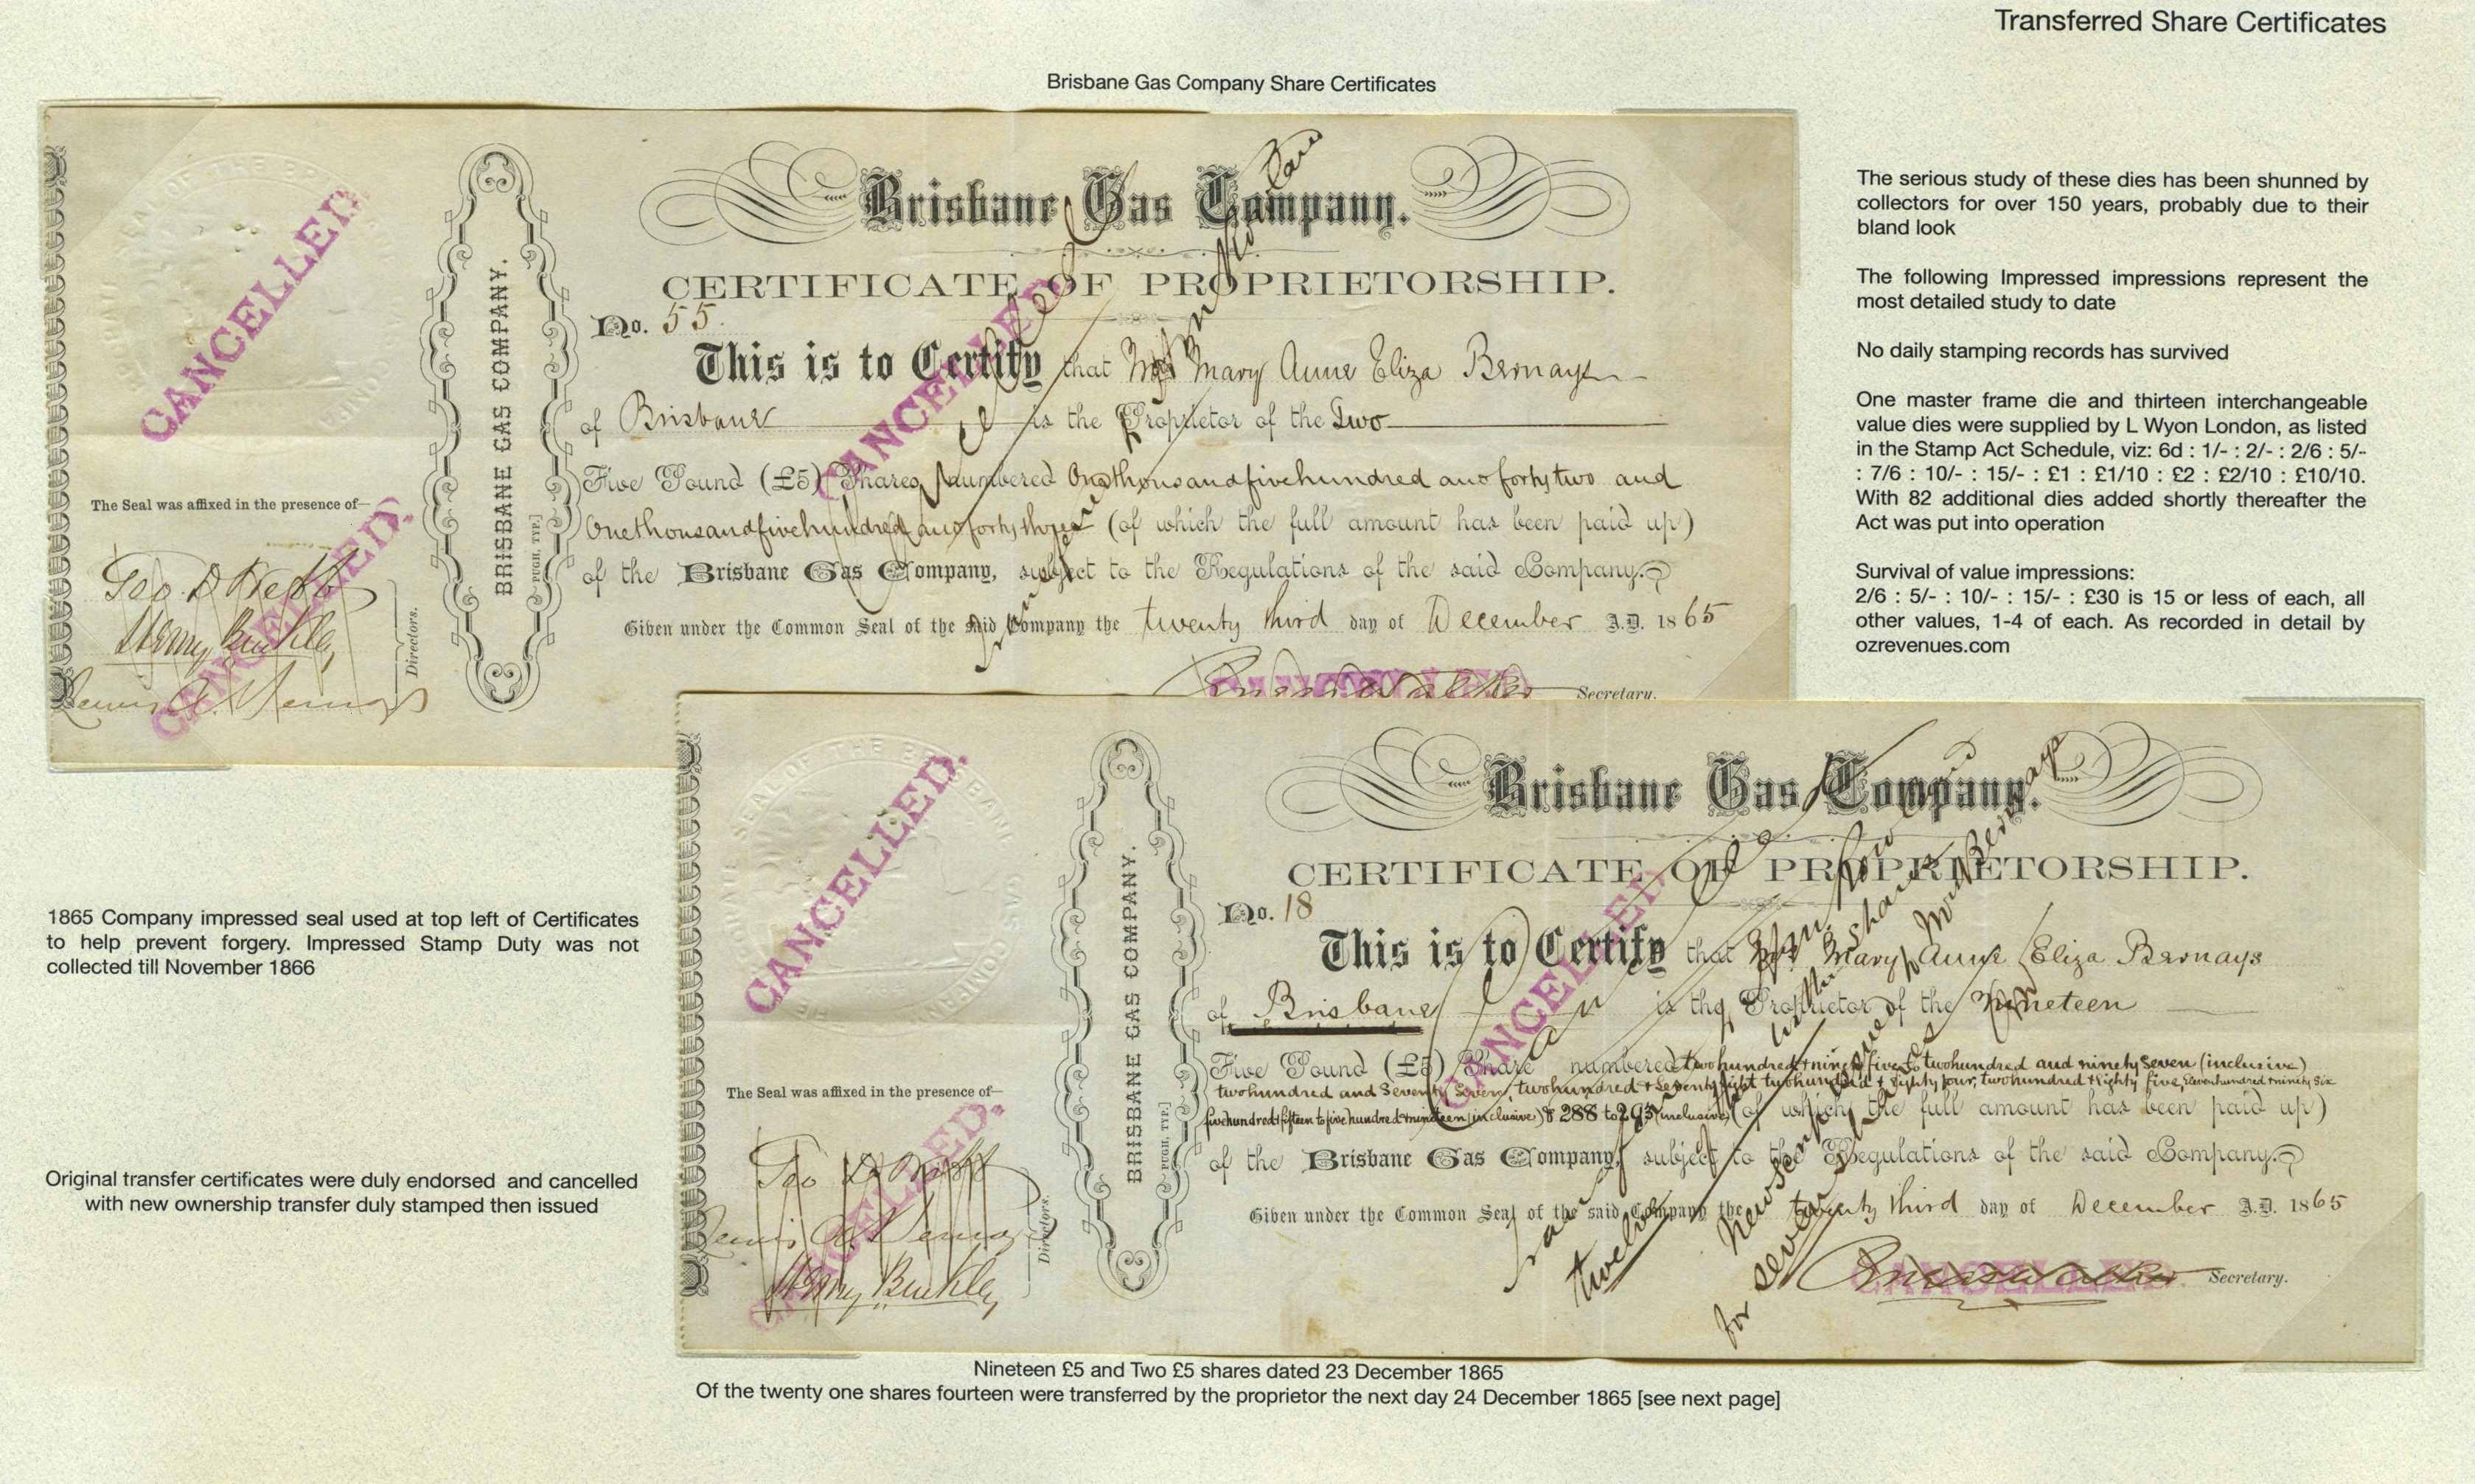 Transferred Share Certificates
Brisbane Gas Company Share Certificates
CANCELLED.
The Seal was affixed in the presence of—
Directors.
CANCELLED.
BRISBANE GAS COMPANY.
[PUGH, TYP.]
Brisbane Gas Company.
CERTIFICATE OF PROPRIETORSHIP.
No. 55.
This is to Certify that Mrs Mary Anne Eliza Bernays
of Brisbane is the Proprietor of the Two
Five Pound (£5) Shares Numbered Onethousandfivehundred and forty two and
Onethousandfivehundred and forty three (of which the full amount has been paid up)
of the Brisbane Gas Company, subject to the Regulations of the said Company.
Given under the Common Seal of the said Company the twenty third day of December A.D. 1865
Secretary.
CANCELLED.
The serious study of these dies has been shunned by
collectors for over 150 years, probably due to their
bland look
The following Impressed impressions represent the
most detailed study to date
No daily stamping records has survived
One master frame die and thirteen interchangeable
value dies were supplied by L Wyon London, as listed
in the Stamp Act Schedule, viz: 6d : 1/- : 2/- : 2/6 : 5/-
: 7/6 : 10/- : 15/- : £1 : £1/10 : £2 : £2/10 : £10/10.
With 82 additional dies added shortly thereafter the
Act was put into operation
Survival of value impressions:
2/6 : 5/- : 10/- : 15/- : £30 is 15 or less of each, all
other values, 1-4 of each. As recorded in detail by
ozrevenues.com
1865 Company impressed seal used at top left of Certificates
to help prevent forgery. Impressed Stamp Duty was not
collected till November 1866
Original transfer certificates were duly endorsed and cancelled
with new ownership transfer duly stamped then issued
SEAL OF THE BRISBANE GAS COMPANY
CANCELLED.
The Seal was affixed in the presence of—
Henry Buckley
Directors.
CANCELLED.
BRISBANE GAS COMPANY.
[PUGH, TYP.]
Brisbane Gas Company.
CERTIFICATE OF PROPRIETORSHIP.
No. 18
This is to Certify that Mrs Mary Anne Eliza Bernays
of Brisbane is the Proprietor of the Nineteen
Five Pound (£5) Share numbered twohundred + ninety five to twohundred and ninety seven (inclusive)
twohundred and Seventy Seven, twohundred + Seventy eight twohundred + Eighty four, twohundred + Eighty five, Elevenhundred + ninety Six
fivehundred + fifteen to fivehundred + nineteen (inclusive) & 288 to 293 (inclusive) (of which the full amount has been paid up)
of the Brisbane Gas Company, subject to the Regulations of the said Company.
Given under the Common Seal of the said Company the twenty third day of December A.D. 1865
Secretary.
CANCELLED
Nineteen £5 and Two £5 shares dated 23 December 1865
Of the twenty one shares fourteen were transferred by the proprietor the next day 24 December 1865 [see next page]